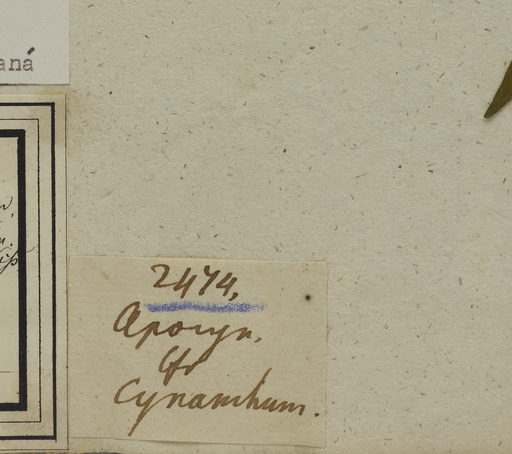 aná
2474,
Apocyn.
Cfr
Cynanchum.